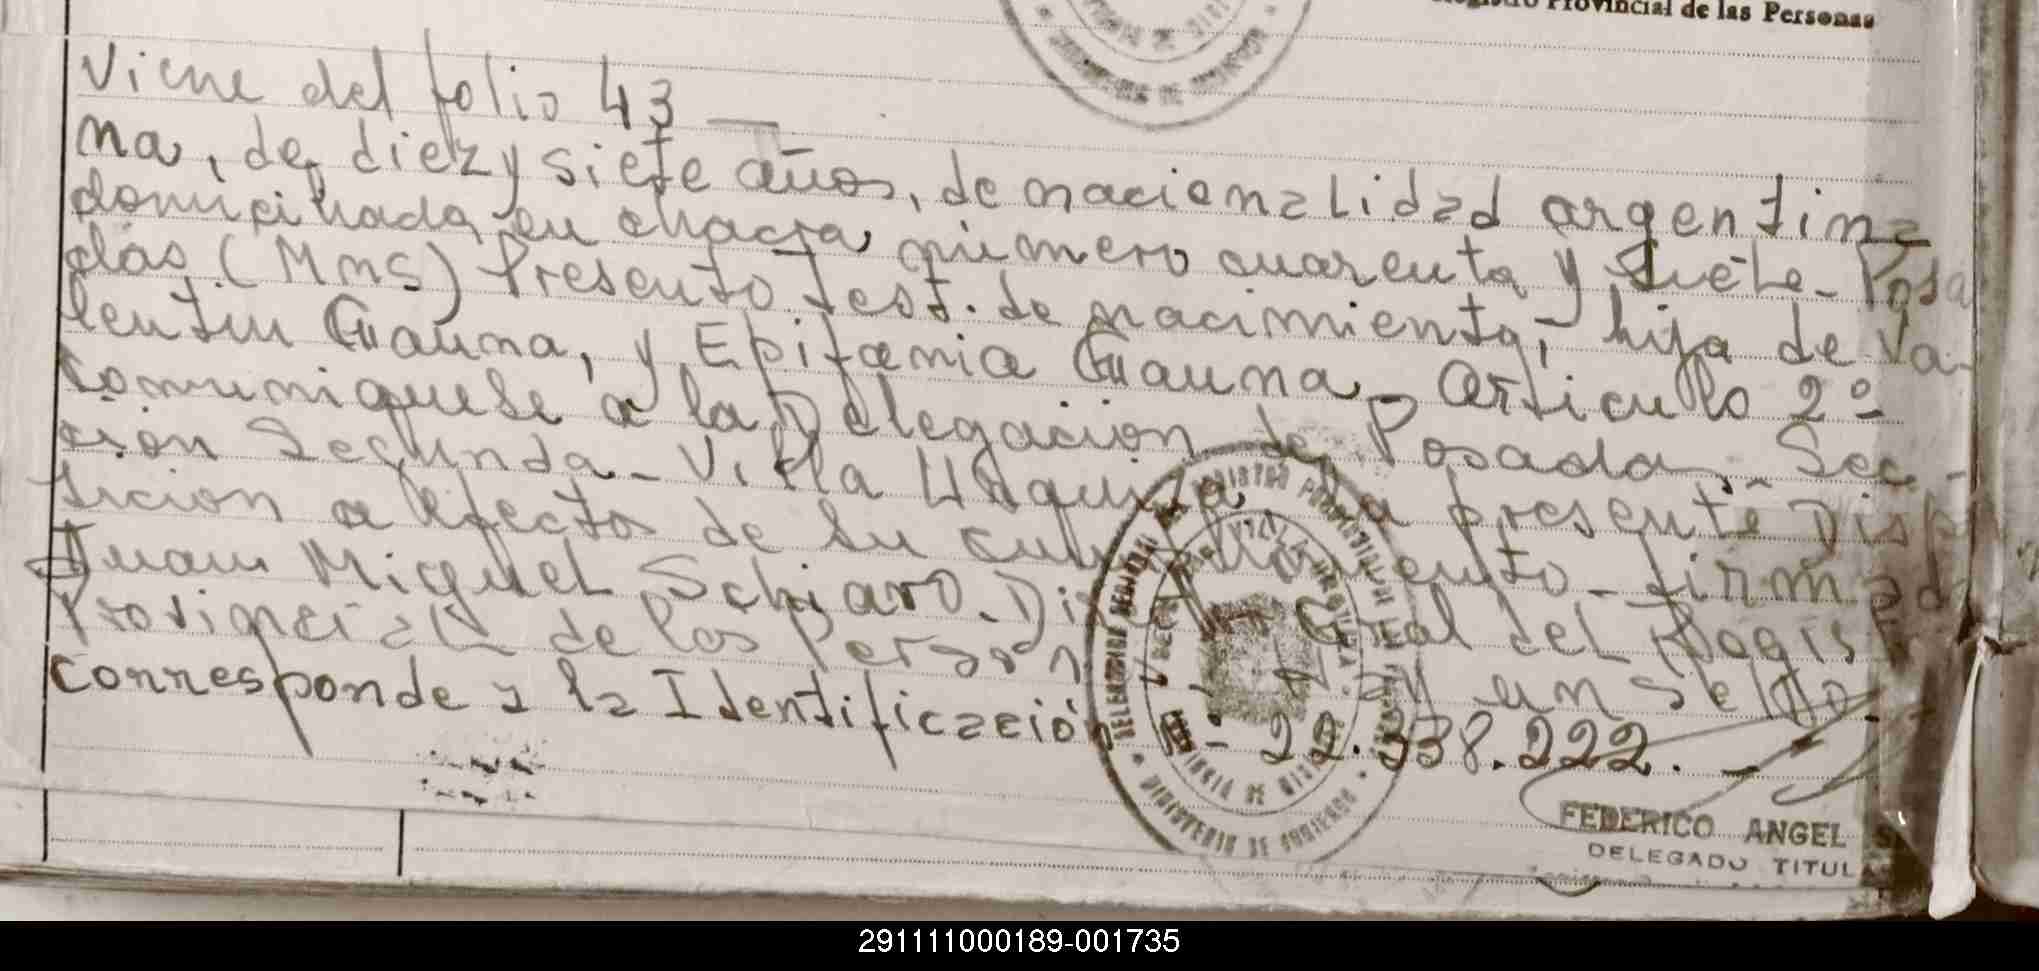 Registro Provincial de las Personas
Viene del folio 43 —
na, de diez y siete años, de nacionalidad argentina
domicihada en chacra número cuarenta y siete - Posa
das (Mnes) Presento Test. de nacimiento, - hija de Va-
lentin Gauna, y Epifania Gauna - Articulo 2º -
Comuniquese a la Delegacion de Posadas Sec -
cion Segunda - Villa Urquiza la presente Disp
sicion a efectos de su cumplimiento - firmado
Juan Miguel Schiavo. Di Gral del Regis
Provincial de los Person y un sello
corresponde a la Identificación - 22.338.222. -
FEDERICO ANGEL S
DELEGADO TITULA
291111000189-001735